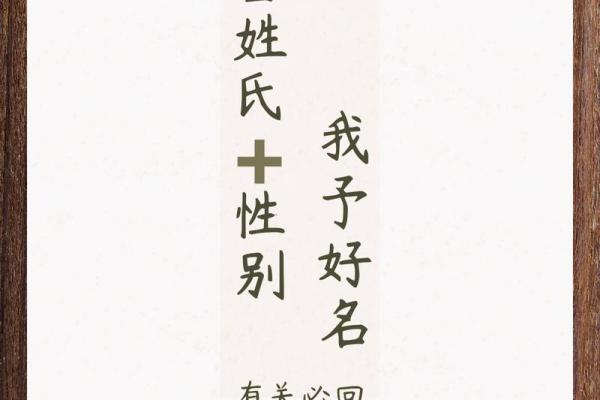 姓氏➕性别
我予好名
有关必回